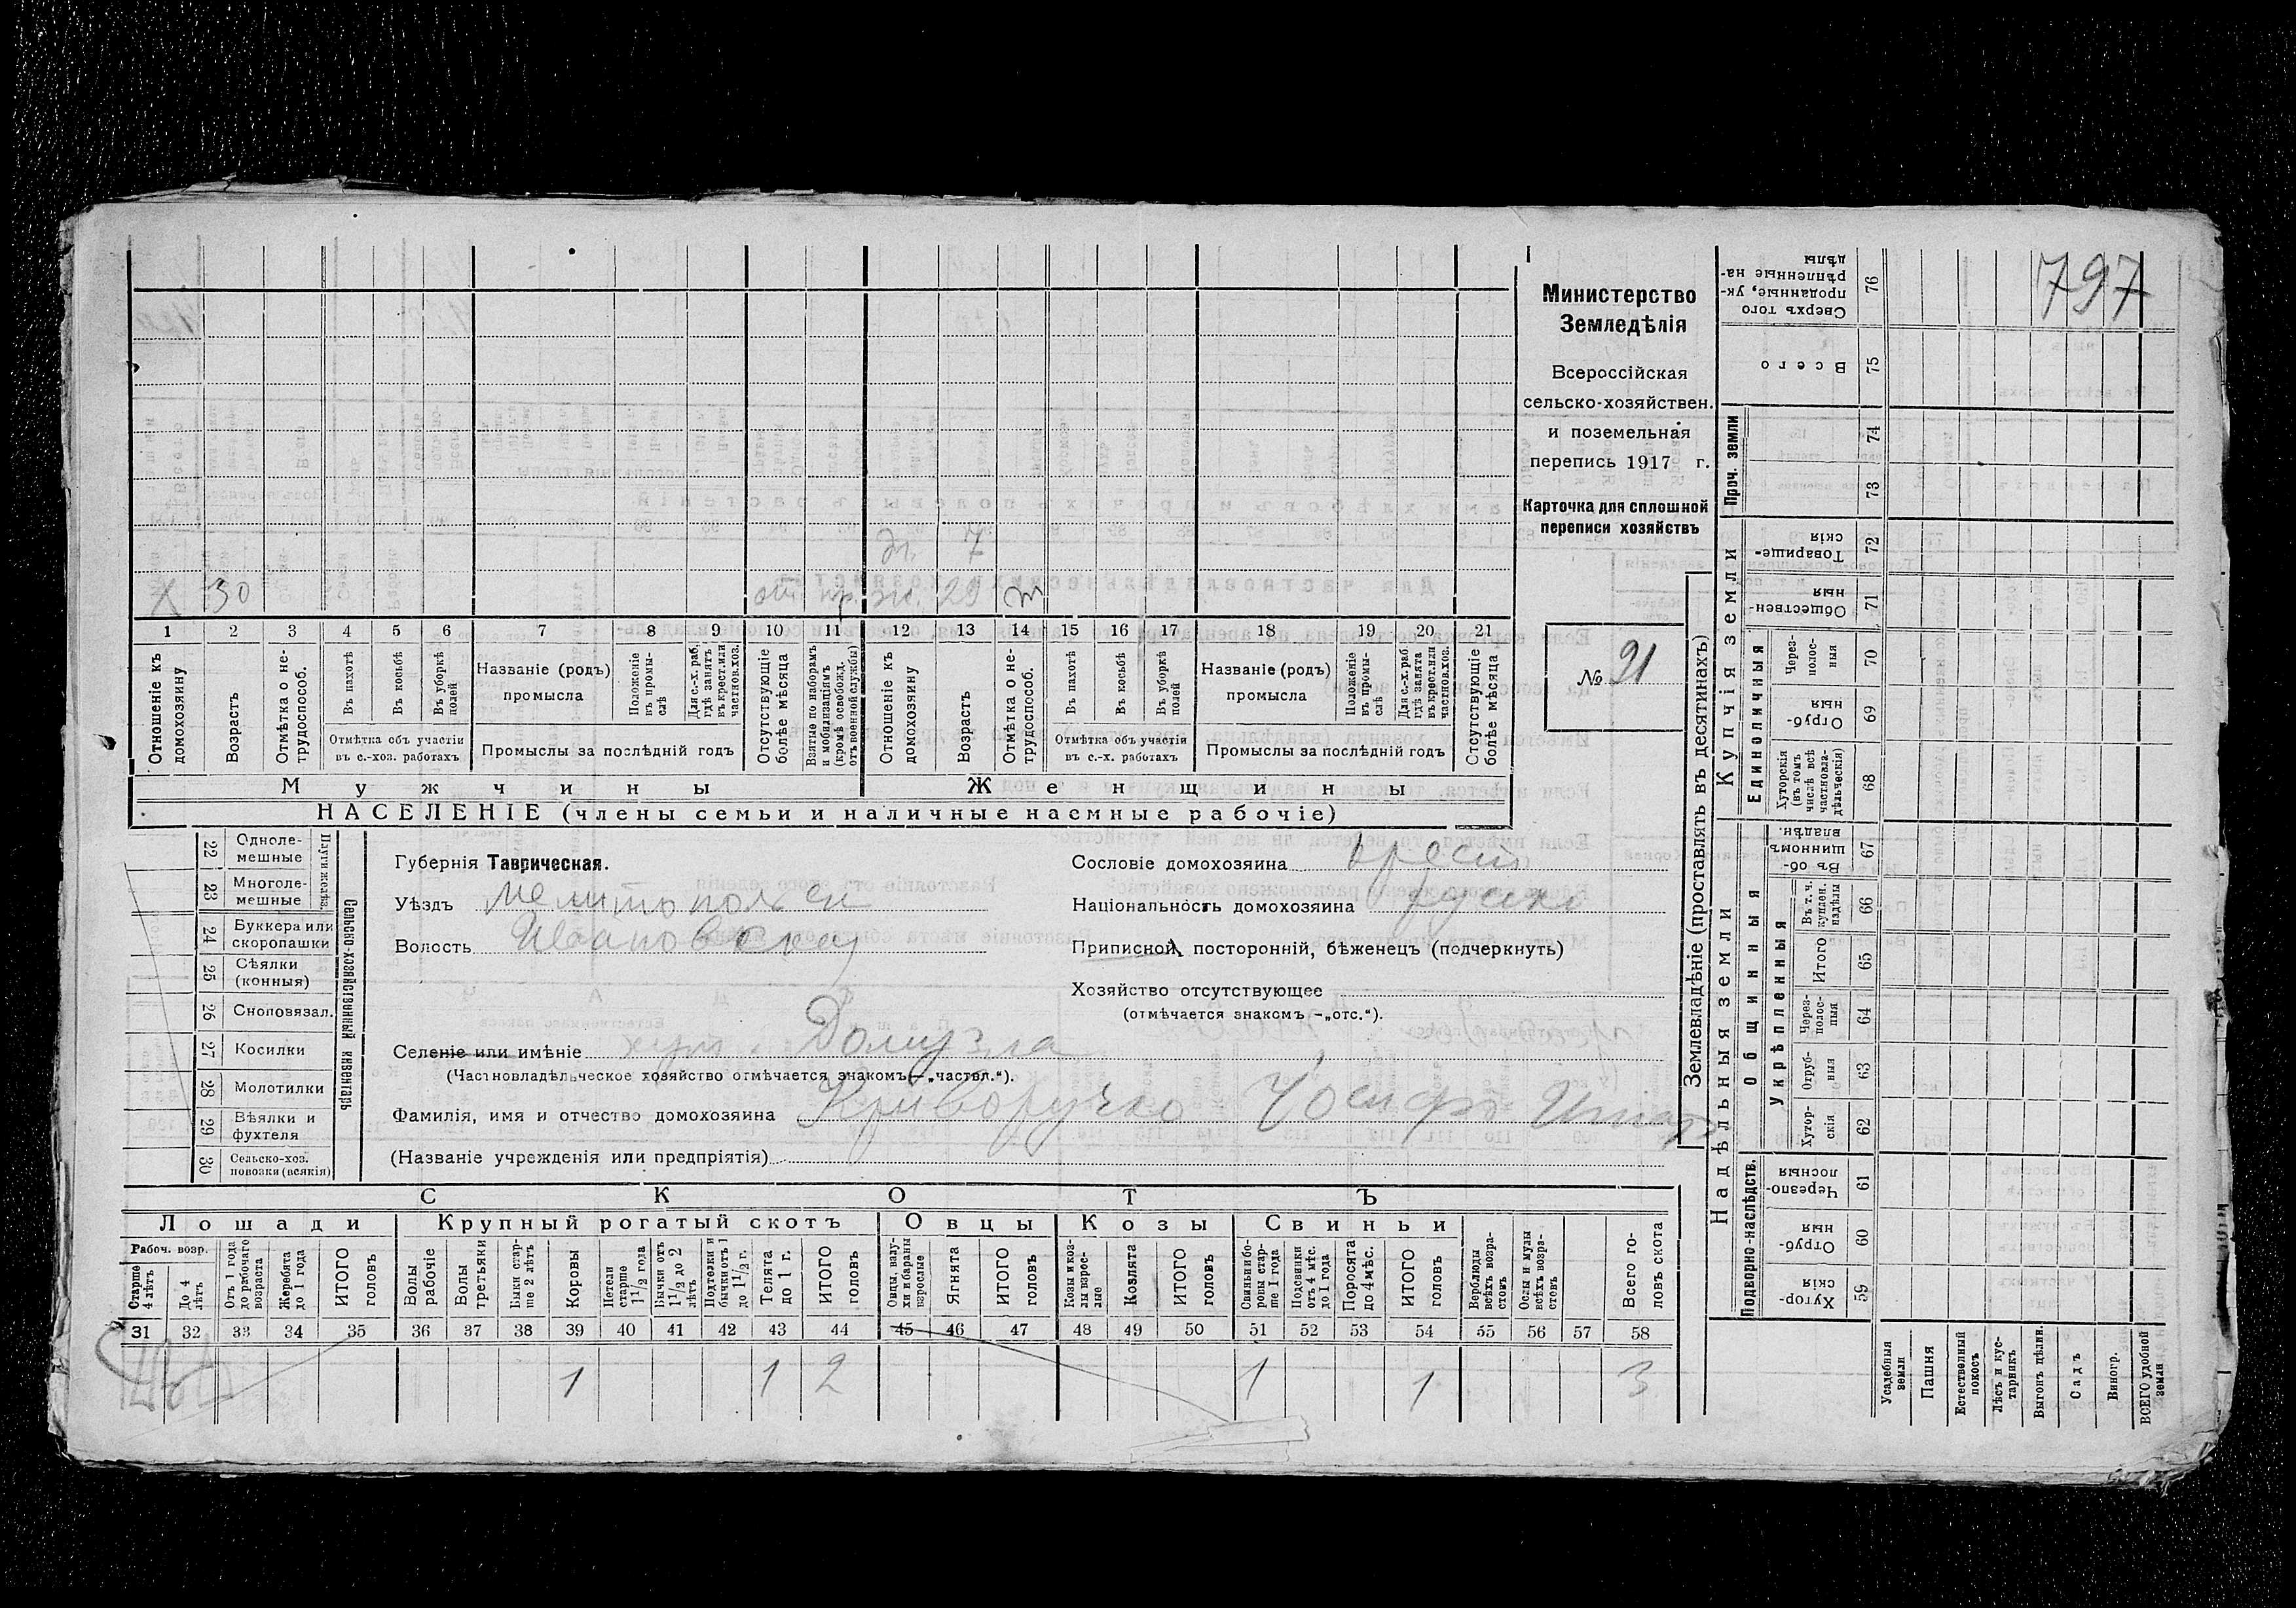 797
Министерство
Земледѣлія
Всероссійская
сельско-хозяйствен.
и поземельная
перепись 1917 г.
Карточка для сплошной
переписи хозяйствъ
№ 91
дч. 7
Х 30 отс. пр. ж. 29
1 2 3 4 5 6 7 8 9 10 11 12 13 14 15 16 17 18 19 20 21
Отношеніе къ домохозяину
Возрастъ
Отмѣтка о не-трудоспособ.
Въ пахотѣ
Въ косьбѣ
Въ уборкѣ полей
Отмѣтка объ участіи въ с.-хоз. работахъ
Названіе (родъ) промысла
Положеніе въ промы-слѣ
Для с.-х. раб. гдѣ занятъ въ крест. или частнов. хоз.
Промыслы за послѣдній годъ
Отсутствующіе болѣе мѣсяца
Взятые по наборамъ и мобилизаціямъ (кромѣ освобожд. отъ военной службы)
Отношеніе къ домохозяину
Возрастъ
Отмѣтка о не-трудоспособ.
Въ пахотѣ
Въ косьбѣ
Въ уборкѣ полей
Отмѣтка объ участіи въ с.-х. работахъ
Названіе (родъ) промысла
Положеніе въ промы-слѣ
Для с.-х. раб. гдѣ занята въ крест. или частнов. хоз.
Промыслы за послѣдній годъ
Отсутствующіе болѣе мѣсяца
Мужчины Женщины
НАСЕЛЕНІЕ (члены семьи и наличные наемные рабочіе)
22 Одноле-мешные
23 Многоле-мешные
Плуги желѣз.
24 Буккера или скоропашки
25 Сѣялки (конныя)
26 Сноповязал.
27 Косилки
28 Молотилки
29 Вѣялки и фухтеля
30 Сельско-хоз. повозки (всякія)
Сельско-хозяйственный инвентарь
Губернія Таврическая.
Уѣздъ Мелитопольск
Волость Ивановская
Сословіе домохозяина крест
Національность домохозяина русск
Приписной, посторонній, бѣженецъ (подчеркнуть)
Хозяйство отсутствующее
(отмѣчается знакомъ –„отс.“).
Селеніе или имѣніе хут. Домузла
(Частновладѣльческое хозяйство отмѣчается знакомъ–„частвл.“).
Фамилія, имя и отчество домохозяина Криворучко Іосифъ
(Названіе учрежденія или предпріятія)
СКОТЪ
Лошади Крупный рогатый скотъ Овцы Козы Свиньи
Рабоч. возр.
Старше 4 лѣтъ
До 4 лѣтъ
Отъ 1 года до рабочаго возраста
Жеребята до 1 года
ИТОГО головъ
Волы рабочіе
Волы третьяки
Быки стар-ше 2 лѣтъ
Коровы
Нетели старше 1 1/2 года
Бычки отъ 1 1/2 до 2 лѣтъ
Подтелки и бычки отъ 1 до 1 1/2 г.
Телята до 1 г.
ИТОГО головъ
Овцы, валу-хи и бараны взрослые
Ягнята
ИТОГО головъ
Козы и коз-лы взрос-лые
Козлята
ИТОГО головъ
Свиньи бо-ровы стар-ше 1 года
Подсвинки отъ 4 мѣс. до 1 года
Поросята до 4 мѣс.
ИТОГО головъ
Верблюды всѣхъ возра-стовъ
Ослы и мулы всѣхъ возра-стовъ
Всего го-ловъ скота
31 32 33 34 35 36 37 38 39 40 41 42 43 44 45 46 47 48 49 50 51 52 53 54 55 56 57 58
1 1 2 1 1 3
Землевладѣніе (проставлять въ десятинахъ)
Купчія земли
Надѣльныя земли
Проч. земли
Единоличныя
Общинныя
Укрѣпленныя
Подворно-наслѣдств.
Сверхъ того проданные, ук-рѣпленные на-дѣлы 76
Всего 75
74
73
Товарище-скія 72
Обществен-ныя 71
Через-полос-ныя 70
Отруб-ныя 69
Хуторскія (въ томъ числѣ всѣ частновла-дѣльческія) 68
Въ об-щинномъ владѣн. 67
Въ т. ч. куплен. надѣлы 66
Итого 65
Через-полос-ныя 64
Отруб-ныя 63
Хутор-скія 62
Черезпо-лосныя 61
Отруб-ныя 60
Хутор-скія 59
Усадебныя земли
Пашня
Естественный покосъ
Лѣсъ и кус-тарникъ
Выгонъ цѣлин.
Садъ
Виногр.
ВСЕГО удобной земли